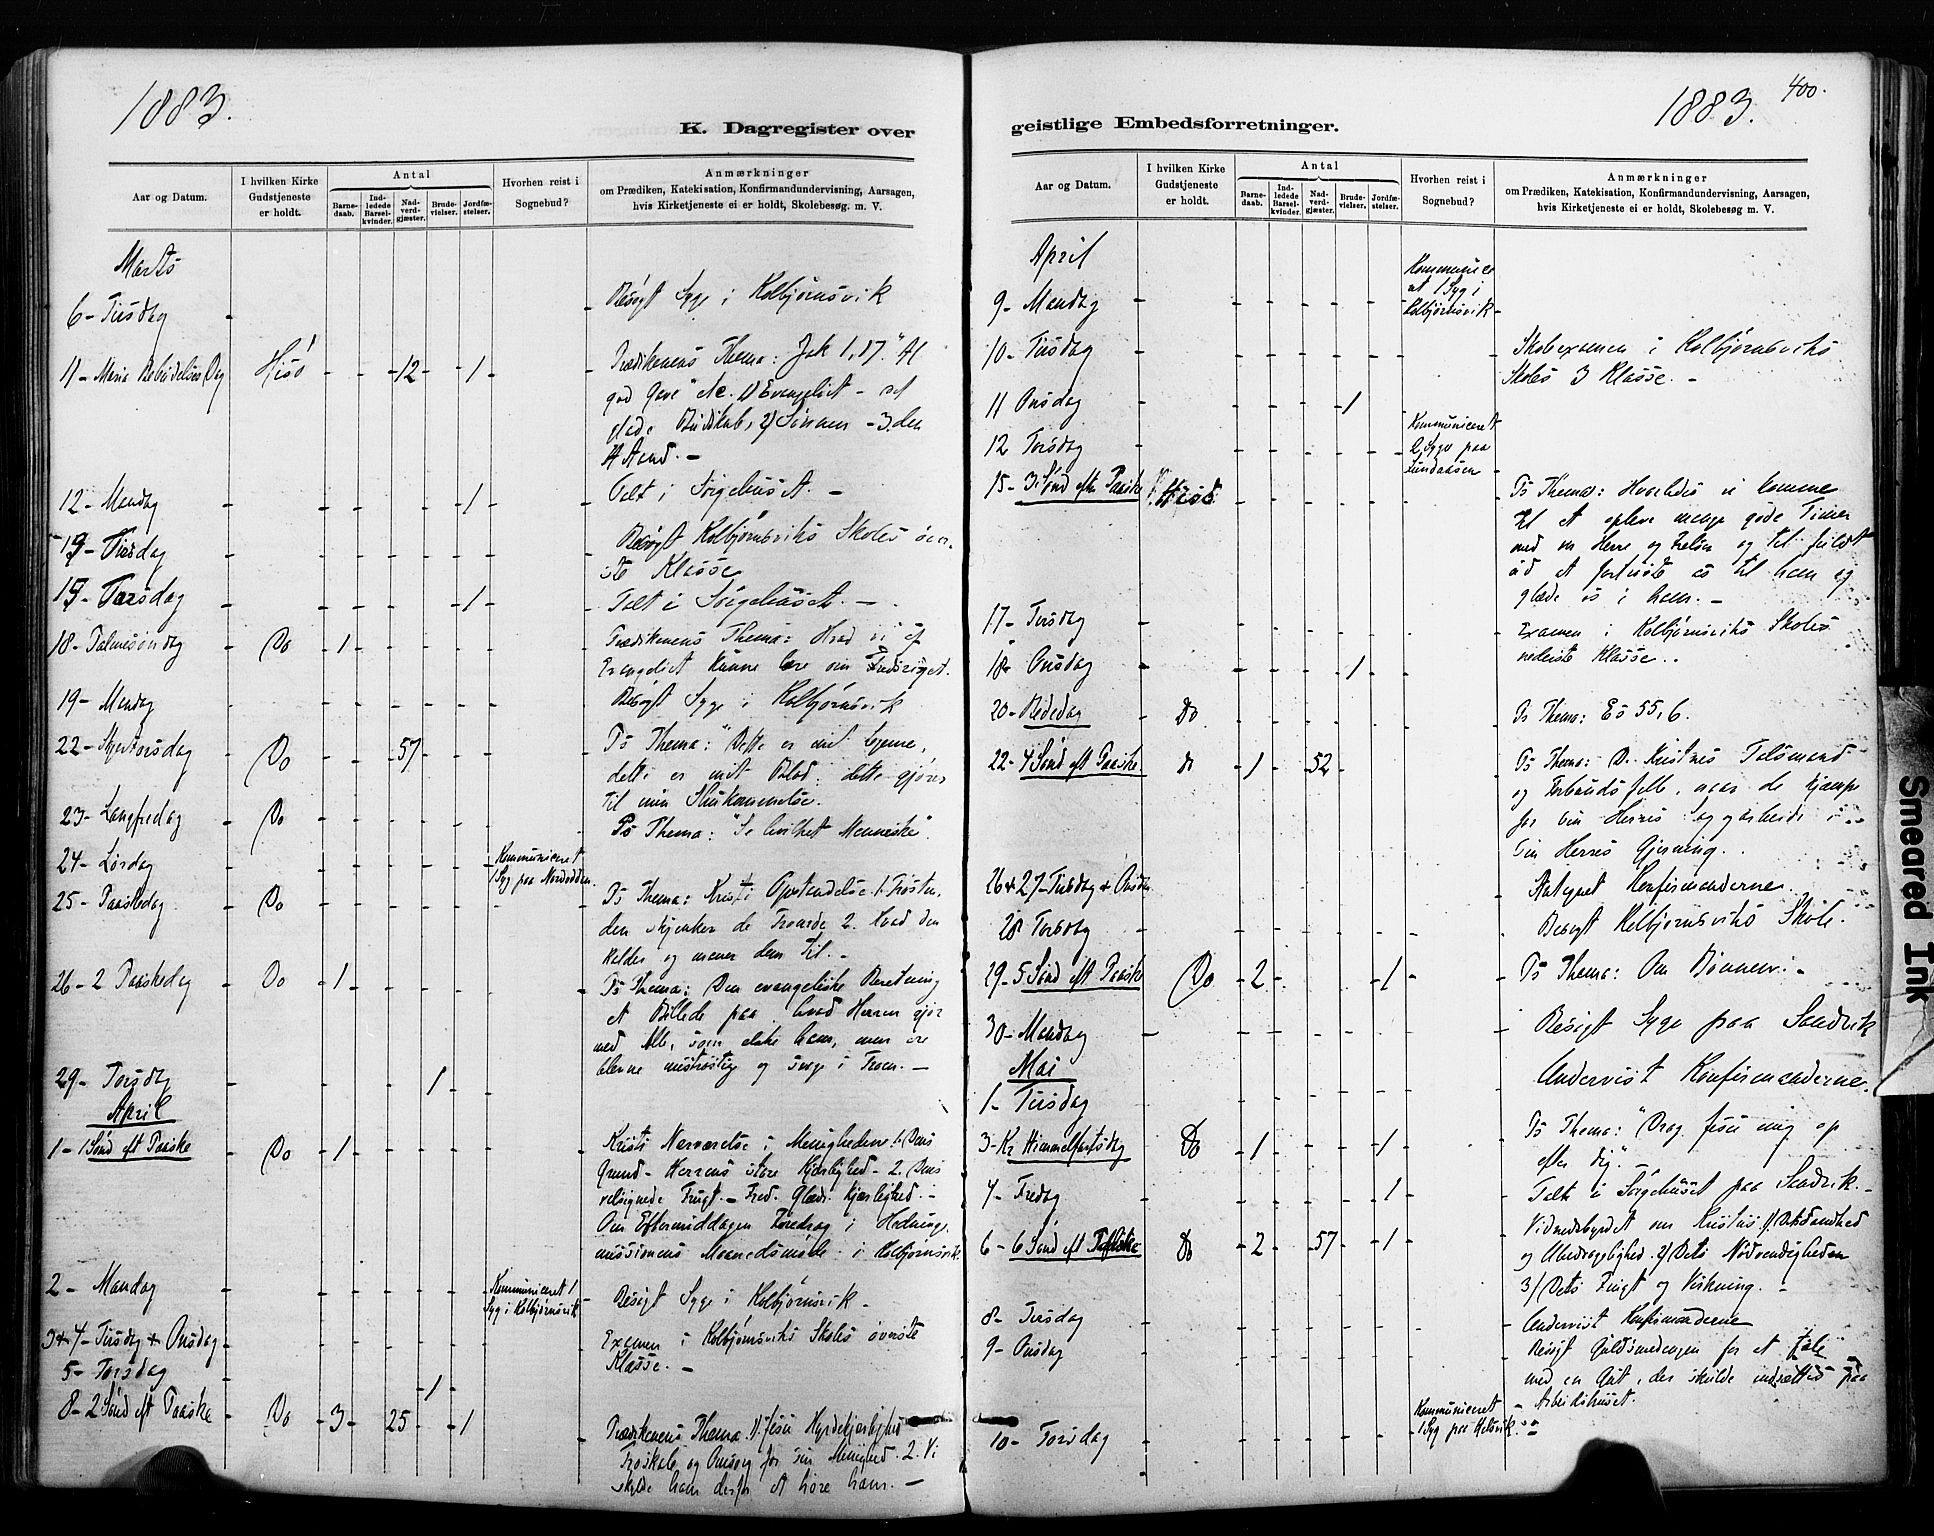 1883.
K. Dagregister over
Aar og Datum.
I hvilken Kirke
Gudstjeneste
er holdt.
Antal
Barne-
daab.
Ind-
ledede
Barsel-
kvinder.
Nad-
verd-
gjæster.
Brude-
vielser.
Jordfæ-
stelser.
Hvorhen reist i
Sognebud?
Anmærkninger
om Prædiken, Katekisation, Konfirmandundervisning, Aarsagen,
hvis Kirketjeneste ei er holdt, Skolebesøg. m. V.
Marts
6 - Tirsdag - Besøgt Syge i Kolbjørnsvik
11 - Maria Bebudelses Dag Hisø - - 12 - 1 - - Prædikenens Thema: Jak 1,17. "Al
god Gave" etc. 1) Evangeliet - et
glade Budskab, 2) - 3. den
H Aand. -
12 - Mandag - - - - - 1 - - Talt i Sørgehuset. -
13 - Tirsdag - Besøgt Kolbjørnsviks Skoles øver-
ste Klasse
15 - Torsdag - - - - - 1 - - Talt i Sørgehuset. -
18 - Palmesøndag - Do - 1 - - - - - Prædikenens Thema: Hvad vi af
Evangeliet kunne lære om
19 - Mandag - Besøgt Syge i Kolbjørnsvik
22 - Skjærtorsdag - Do - - 57 - - - Ps Thema: "Dette er mit Legeme,
dette er mit Blod, dette gjører
til min Ihukommelse.
23 - Langfredag - Do - Ps Thema: "Se hvilket Menneske".
24 - Lørdag - Kommuniceret
1 Syg paa Nordodden.
25 - Paaskedag - Do - Ps Thema: Kristi Opstandelse. 1. Trøsten,
den skjenker de Troende 2. Hvad den
kalder og maner dem til. -
26 - 2 Paaskedag - Do - 1 - - - - - Ps Thema: Den evangeliske Beretning
et Billede paa, hvad Herren gjør
med Alle, som elske ham, men ere
blevne mistrøstige og svage i Troen. -
29 - Torsdag - - - - 1 - -
April
1 - 1 Sønd eft Paaske - Do - 1 - - - - - Kristi Nærværelse i Menigheden. 1. Dens
Grund - Herrens store Kjærlighed - 2. Dens
velsignede Frugt. - Fred. Glæde. Kjærlighed. -
Om Eftermiddagen Foredrag i Hedninge-
missionens Maanedsmøde i Kolbjørnsvik
2 - Mandag - Kommuniceret 1
Syg i Kolbjørnsvik - Besøgt Syge i Kolbjørnsvik -
3 + 4 - Tirsdag + Onsdag - Examen i Kolbjørnsviks Skoles øverste
Klasse. -
5 - Torsdag - - - - 1 -
8 - 2 Sønd eft Paaske - Do - 3 - 25 - - 1 - Prædikenens Thema: 1. Jesu Hyrdekjærlighed
Troskab og Omsorg for sin Menighed. 2. Vi
skylde ham derfor at høre ham. -
geistlige Embedsforretninger.
1883.
400.
Aar og Datum.
I hvilken Kirke
Gudstjeneste
er holdt.
Antal
Barne-
daab.
Ind-
ledede
Barsel-
kvinder.
Nad-
verd-
gjæster.
Brude-
vielser.
Jordfæ-
stelser.
Hvorhen reist i
Sognebud?
Anmærkninger
om Prædiken, Katekisation, Konfirmandundervisning, Aarsagen,
hvis Kirketjeneste ei er holdt, Skolebesøg m. V.
April
9 - Mandag - Kommunice-
ret 1 Syg i
Kolbjørnsvik -
10 - Tirsdag - Skoleexamen i Kolbjørnsviks
Skoles 3 Klasse. -
11 Onsdag - - - - 1 -
12 Torsdag - Kommuniceret
2 Syge paa
15 - 3. Sønd efter Paaske Hisø - Ps Thema: Hvorledes vi komme
til at opleve mange gode Timer
med vor Herre og Frelser og til fuldt
ud at fortrøste os til ham og
glæde os i ham. -
17 - Tirsdag - Examen i Kolbjørnsviks Skoles
nederste Klasse. -
18 - Onsdag - - - - 1 -
20 - Bededag Do - Ps Thema: Es 55, 6.
22 - 4 Sønd eft Paaske Do - 1 - 52 - Ps Thema: De Kristnes Talsmand
og Forbundsfelle, naar de kjæmpe
for sin Herres Sag arbeide i
sin Herres Gjerning.
26 + 27 - Tirsdag + Onsdag Konfirmanderne
28 Torsdag - Besøgt Kolbjørnsviks Skole.
29 - 5 Sønd eft Paaske Do - 2 - - - - 1 - Ps Thema: Om Bønnen. -
30 - Mandag - Besøgt Syge paa Sandvik
Mai
1 - Tirsdag - Undervist Konfirmanderne.
3 - Kr Himmelfartsdag Do - 1 - - - 1 - Ps Thema: "Drag Jesu mig op
efter dig". -
4 - Fredag - - - - - 1 - Talt i Sørgehuset paa Sandvik. -
6 - 6 Sønd eft Paaske Do - 2 - 57 - 1 - Vidnesbyrdet om Kristus 1)
og 2) Dets Nødvendigheden
3) Dets Frugt og Virkning. -
8 - Tirsdag - Undervist Konfirmanderne
9 - Onsdag - Besøgt for at tale
med en Gut, der skulde indsættes paa
Arbeidshuset.
10 - Torsdag - Kommuniceret
1 Syg paa
Smeared Ink